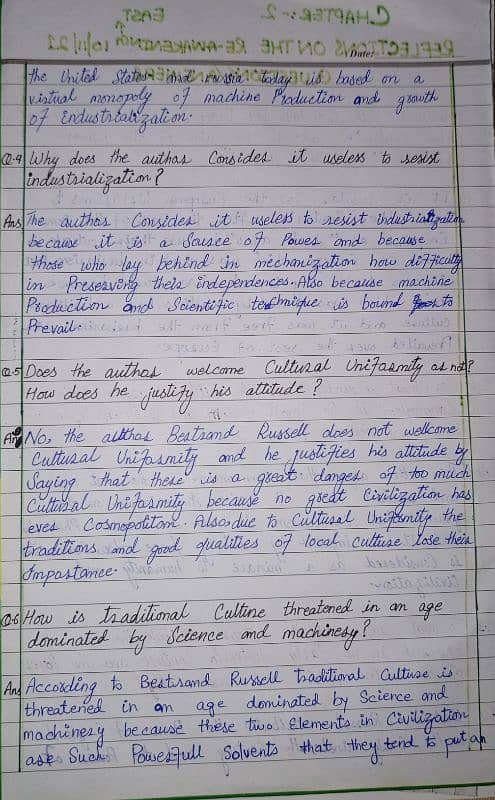 the United States and russia today is based on a
virtual monopoly of machine Production and growth
of Industrialization.
Q.4 Why does the author Consider it useless to resist
industrialization?
Ans The author Consider it useless to resist industrialization
because it is a Source of Power and because
those who lay behind in mechanization how difficulty
in Preserving their independences. Also because machine
Production and Scientific technique is bound to
Prevail.
Q.5 Does the author welcome Cultural Uniformity or not?
How does he justify his attitude?
Ans No, the author Bertrand Russell does not wellcome
Cultural Uniformity and he justifies his attitude by
Saying that there is a great danger of too much
Cultural Uniformity because no great Civilization has
ever Cosmopolitan. Also due to Cultural Uniformity the
traditions and good qualities of local culture lose their
Importance.
Q.6 How is traditional Culture threatened in an age
dominated by Science and machinery?
Ans According to Bertrand Russell traditional Culture is
threatened in an age dominated by Science and
machinery because these two Elements in Civilization
are Such Powerfull Solvents that they tend to put an